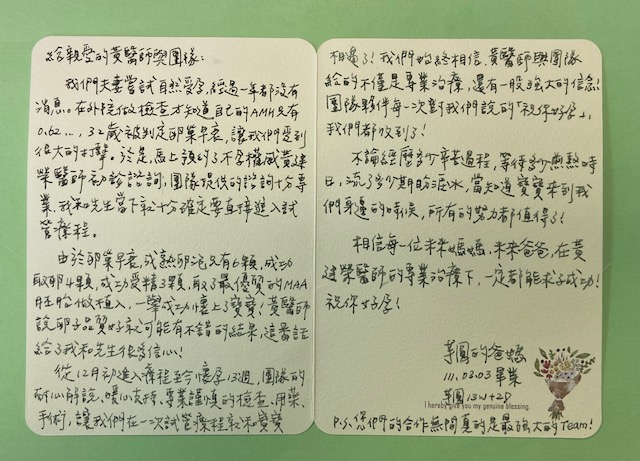 給親愛的黃醫師與團隊：
我們夫妻嘗試自然受孕，經過一年都沒有
消息。在外院做檢查才知道自己的AMH只有
0.62...，32歲被判定卵巢早衰，讓我們受到
很大的打擊。於是，馬上預約了不孕權威黃建
榮醫師初診諮詢，團隊提供的諮詢十分專
業，我和先生當下就十分確定要直接進入試
管療程。
由於卵巢早衰，成熟卵泡只有6顆，成功
取卵4顆，成功受精3顆，取3最優質的MAA
胚胎做植入，一舉成功懷上了寶寶！黃醫師
說卵子品質好就可能有不錯的結果，這番話
給了我和先生很多信心！
從12月初進入療程至今懷孕13週，團隊的
耐心解說、暖心支持、專業謹慎的檢查、用藥、
手術，讓我們在一次試管療程就和寶寶
相遇了！我們始終相信，黃醫師與團隊
給的不僅是專業治療，還有一股強大的信念！
團隊夥伴每一次對我們說的「祝你好孕」，
我們都收到了！
不論經歷多少辛苦過程，等待多少煎熬時
日，流了多少期盼淚水，當知道寶寶來到我
們身邊的時候，所有的努力都值得了！
相信每一位未來媽媽，未來爸爸，在黃
建榮醫師的專業治療下，一定都能求子成功！
祝你好孕！
芋圓的爸媽
111.03.03 畢業
芋圓13w+2D
I hereby give you my genuine blessing.
P.S. 您們的合作無間真的是最強大的Team！